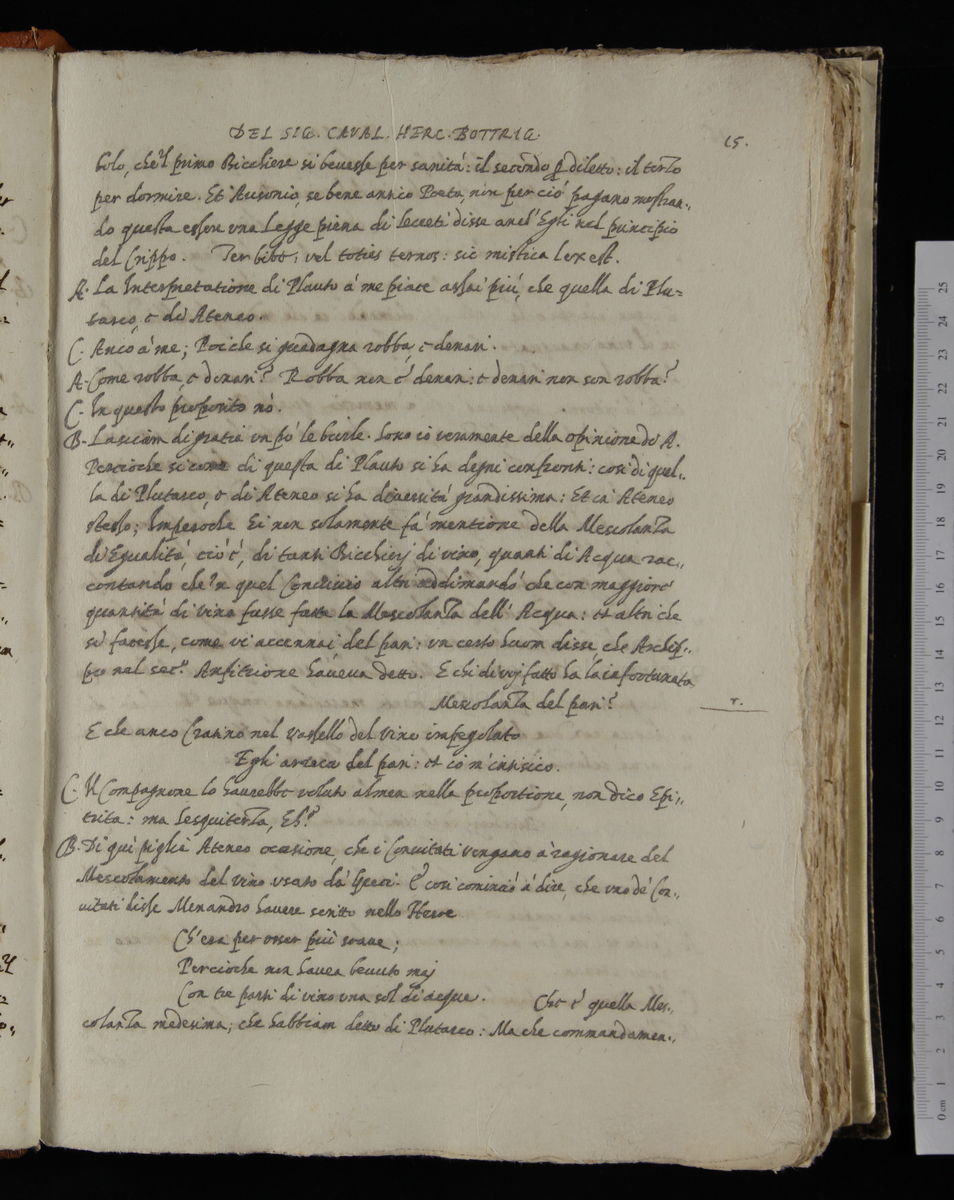 DEL SIG. CAVAL. HERC. BOTTRIG.
15.
bolo, che'l primo Bicchiere si beuesse per sanità: il secondo p diletto: il terzo
per dormire. Et Ausonio, se bene antico Poeta, non per ciò pagano mostran„
do questa essere vna Legge piena di secreti disse anch'Egli nel principio
del Grippo. Ter bibe, vel toties ternos: sic mistica lex est.
A. La Interpretatione di Plauto à me piace assai più, che quella di Plu=
tarco, & di Ateneo.
C. Anco à me; Poi che si guadagna robba, & denari.
A. Come robba, & denari? Robba non è denari: & denari non son robba?
C. In questo proposito nò.
B. Lasciam di gratia vn pò le burle. Sono io veramente della opinione di A.
Percioche si come di questa di Plauto si ha degni confronti: così di quel„
la di Plutarco, & di Ateneo si ha diuersità grandissima: Et in Ateneo
stesso; Imperòche Ei non solamente fà mentione della Mescolanza
di Egualità, ciò è, di tanti Bicchierj di vino, quanti di Acqua rac„
contando che'n quel Conuiuio altri addimandò che con maggiore
quantità di vino fusse fatta la Mescolanza dell'Acqua: et altri che
si facesse, come vi accennai, del pari: vn certo huom disse che Archip„
po nel sec.º Anfitrione haueua detto. E chi di voj fatto ha la infortunata
Mescolanza del pari?
r.
E che anco Cratino nel vassello del vino impegolato
Egli arreca del pari: et io m'intisico.
C. Il Compagnone lo haurebbe voluto almen nella proportione, non dico Epi„
trita: ma Sesquiterza, Eh?
B. Di quì piglia Ateneo occasione, che i Conuitati vengano à ragionare del
Mescolamento del vino vsato da Greci. E così cominciò à dire, che vno de' Con„
uitati disse Menandro hauere scritto nello Heroe
Ch'era per esser più soaue;
Percioche non hauea beuuto maj
Con tre parti di vino vna sol di acqua. Che è quella Mes„
colanza medesima, che habbiam detto di Plutarco: Ma che commandamen„